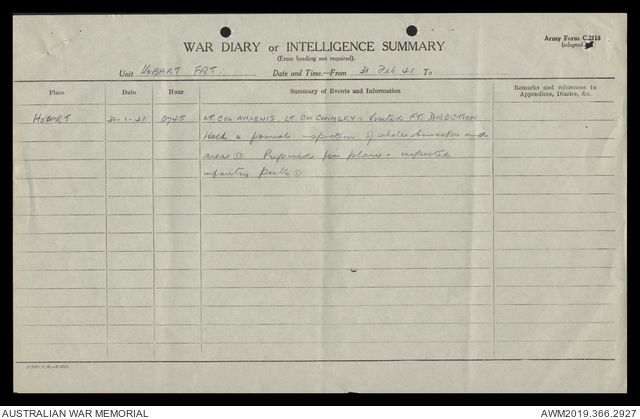 Army Form C.2118
(adapted)
WAR DIARY or INTELLIGENCE SUMMARY
(Erase heading not required).
Unit HOBART FRT. Date and Time.—From 31 Feb 41 To
Place Date Hour Summary of Events and Information Remarks and references to Appendices, Diaries, &c.
HOBART 31-1-41 0745 LT. COL. A.H. LEWIS, LT. C.W. visited FT. DIRECTION
Held a formal inspection of whole barracks and
area. Prepared fire plans - inspected
infantry posts.
AUSTRALIAN WAR MEMORIAL
AWM2019.366.2927